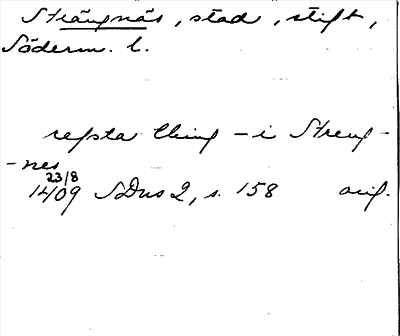 Strängnäs, stad, stift,
Söderm. l.
refsta thing – i Streng-
-nes
23/8
1409 SDns 2, s. 158 orig.